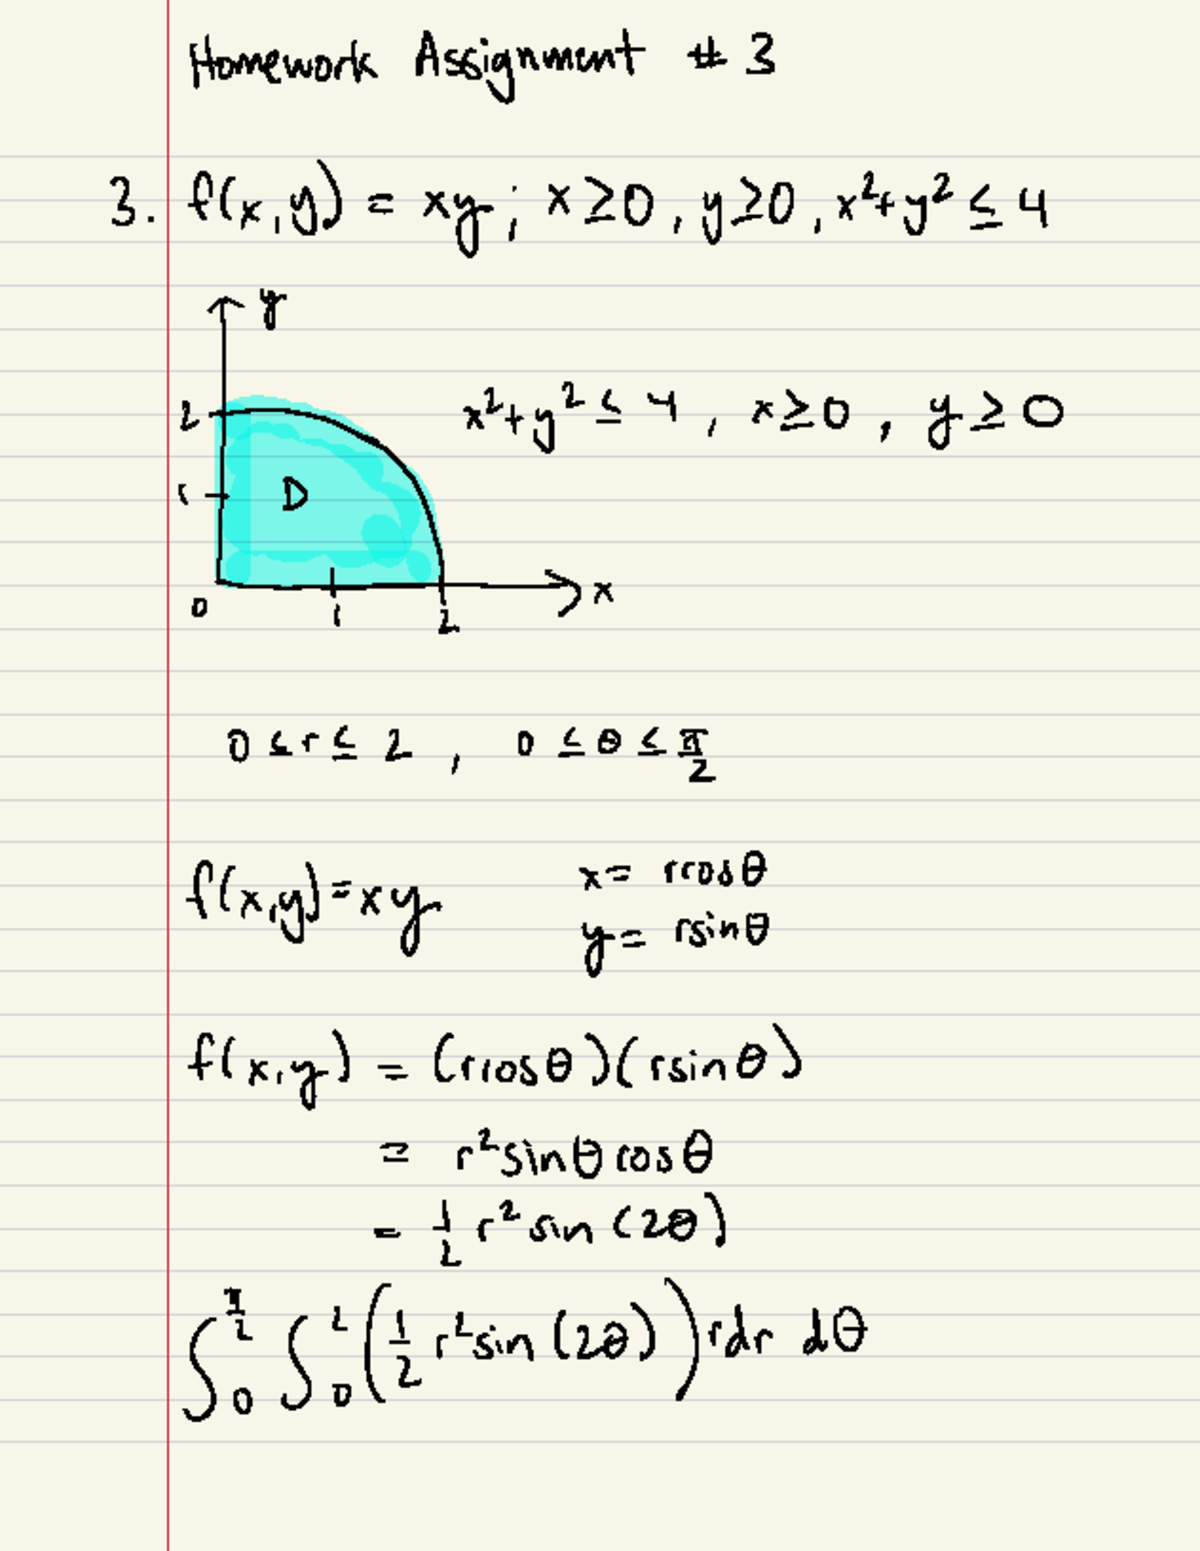 Homework Assignment # 3
3. f(x,y) = xy; x ≥ 0, y ≥ 0, x²+y² ≤ 4
y
2
x²+y² ≤ 4, x ≥ 0, y ≥ 0
1
D
x
0
1
2
0 ≤ r ≤ 2, 0 ≤ θ ≤ π/2
f(x,y) = xy
x = rcosθ
y = rsinθ
f(x,y) = (rcosθ)(rsinθ)
= r²sinθcosθ
= 1/2 r² sin(2θ)
∫₀^(π/2) ∫₀² (1/2 r² sin(2θ)) rdr dθ